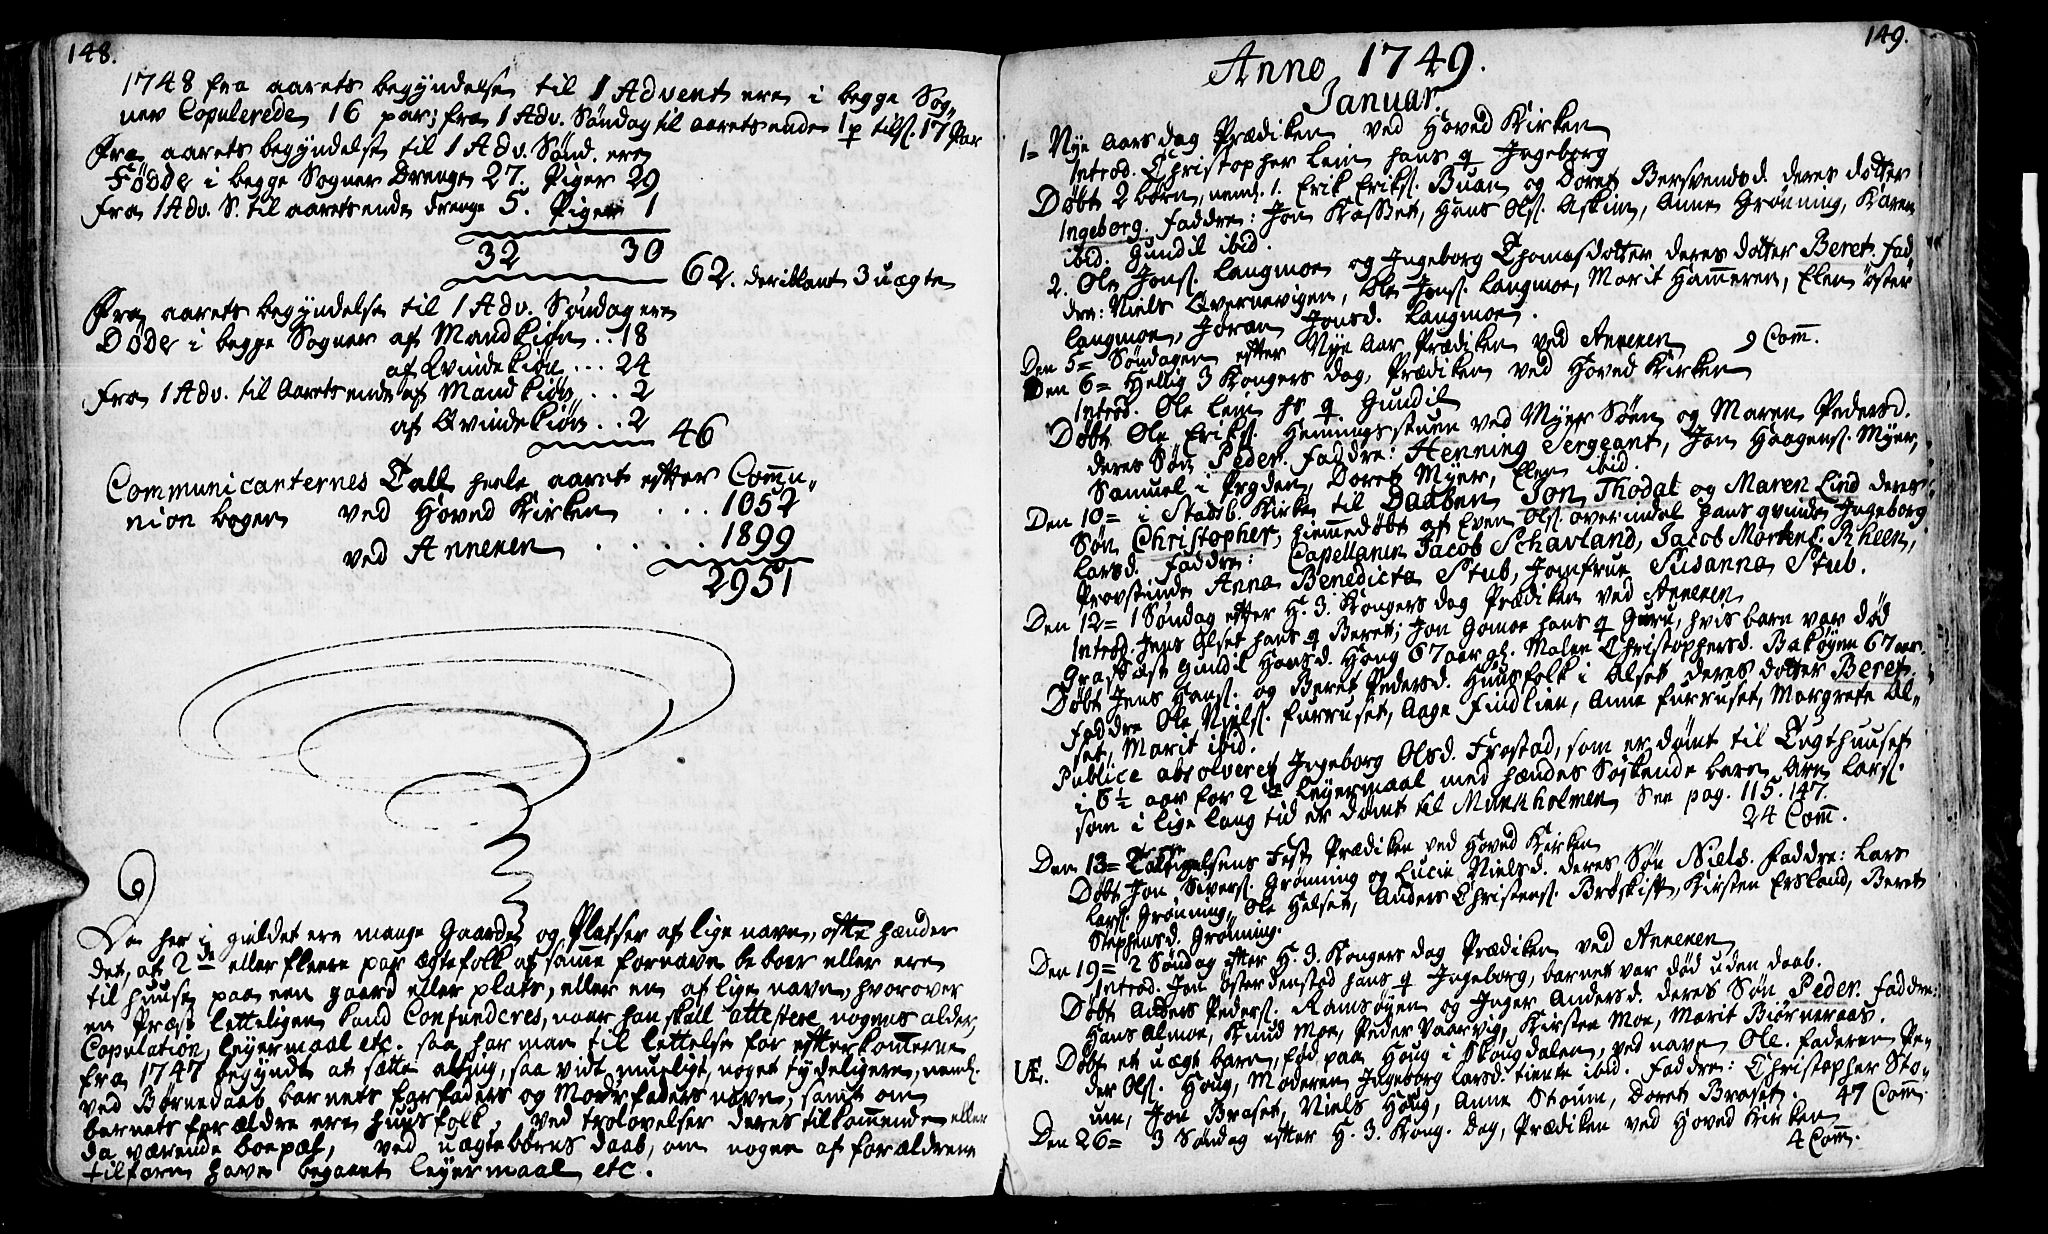 148.
1748 fra aarets begyndelse til 1 Advent ere i begge Sog„
ner Copulerede 16 par; fra 1 Adv. Søndag til aarets ende 1 p tils. 17 Par
Fra aarets begyndelse til 1 Adv. Sønd. ere
Fødde i begge Sogner Drenge 27. Piger 29
fra 1 Adv. S. til aarets ende drenge 5. Piger 1
32 30
62. deriblant 3 uægte
Fra aarets begyndelse til 1 Adv. Søndag ere
Døde i begge Sogner af Mandkiøn .. 18
af Qvindekiøn ... 24
fra 1 Adv. til Aarets ende af Mandkiøn ... 2
af Qvindekiøn .. 2
46
Communicanternes Tall heele aaret efter Commu„
nion bogen ved Hoved Kirken .... 1052
ved Annexen ..... 1899
2951
Da her i gieldet ere mange Gaarde og Platser af lige navn, ofte hænder
det, at 2de eller fleere par ægtefolk af samme fornavn beboer eller ere
til huuse paa een gaard eller plats, eller en af lige navn, hvorover
en Præst letteligen kand Confunderes, naar han skall attestere nogens alder,
Copulation, leyermaal etc. saa har man til lettelse for efterkommerne
fra 1747 begyndt at sætte alting, saa vidt mueligt, noget tydeligere, neml.
ved Børnedaab barnets farfaders og Morfaders navn, samt om
barnets forældre ere huusfolk, ved trolovelser deres tilkommende eller
da værende boepæl, ved uægte børns daab, om nogen af forældrene
tilforn have begaaet leyermaal etc.
149.
Anno 1749.
Januar.
1= Nye Aars dag Prædiken ved Hoved Kirken
Introd. Christopher Lein hans q Ingeborg
Døbt 2 børn, neml. 1. Erik Eriks. Buan og Doret Bersvendsd. deres dotter
Ingeborg. Faddre: Jon Kasset, Hans Ols. Askim, Anne Grønning, Karen
ibid. Gundil ibid.
2. Ole Jons. Langmoe og Ingeborg Thomasdotter deres dotter Beret. Fad„
dre: Niels Overnevigen, Ole Jons. Langmoe, Marit Hammeren, Elen Øster
Langmoe, Jøran Jonsd. Langmoe.
Den 5= Søndagen efter Nye Aar Prædiken ved Annexen 9 Comm.
Den 6= Hellig 3 Kongers dag, Prædiken ved Hoved Kirken
Introd. Ole Lein hs q. Gundil
Døbt Ole Eriks. Henningsstuen ved Myer Søn og Maren Pedersd.
deres Søn Peder. Faddre: Henning Sergeant, Jon Haagens. Myer,
Samuel i Prgden, Doret Myer, Elen ibid.
Den 10= i Stads. Kirke til Daaben Jon Thodal og Maren Lind deres
Søn Christopher, hiemmedøbt af Even Ols. Overindal hans qvinde Ingeborg
Larsd. Faddre: Capellanen Jacob Schavland, Jacob Mortens. Rheen,
Provstinde Anna Benedicta Stub, Jomfrue Susanna Stub.
Den 12= 1 Søndag efter H. 3. Kongers dag Prædiken ved Annexen
Introd. Jens Alset hans q Beret; Jon Gomoe hans q Guru, hvis barn var død
Grafsæst Gundil Hansd. Houg 67 aar gl. Malen Christophersd. Bakøyen 67 aar.
Døbt Jens Hans. og Beret Pedersd. Huusfolk i Alset deres dotter Beret.
Faddre Ole Niels. Furruset, Aage Findlien, Anne Furruset, Margrete Al„
set, Marit ibid.
Publice absolveret Ingeborg Olsd. Frostad, som er dømt til Tugthuuset
i 6½ aar for 2de leyermaal med hendes Søskende barn Arn Lars.
som i lige lang tid er dømt til Munkholmen, See pag. 115. 147.
24 Comm.
Den 13= Taksigelsens Fest Prædiken ved Hoved Kirken
Døbt Jon Sivers. Grønning og Lucie Nielsd. deres Søn Niels. Faddre: Lars
Lars. Grønning, Ole Helset, Anders Christens. Brøskift, Kirsten Ersland, Beret
Stephensd. Grønning.
Den 19= 2 Søndag efter H. 3. Kongers dag Prædiken ved Annexen
Introd. Jon Østerdenstad hans q Ingeborg, barnet var død uden daab.
Døbt Anders Peders. Ramsøyen og Inger Andersd. deres Søn Peder. Faddre:
Hans Almoe, Knud Moe, Peder Vaarvig, Kirsten Moe, Marit Biørneraas.
UÆ. Døbt et uægt barn, fød paa Houg i Skougdalen, ved navn Ole. Faderen Pe„
der Ols. Houg, Moderen Ingeborg Larsd. tiente ibid. Faddre: Christopher Sto„
um, Jon Braset, Niels Houg, Anne Stoum, Doret Braset. 47 Comm.
Den 26= 3 Søndag efter H. 3. Kong. dag, Prædiken ved Hoved Kirken
4 Comm.